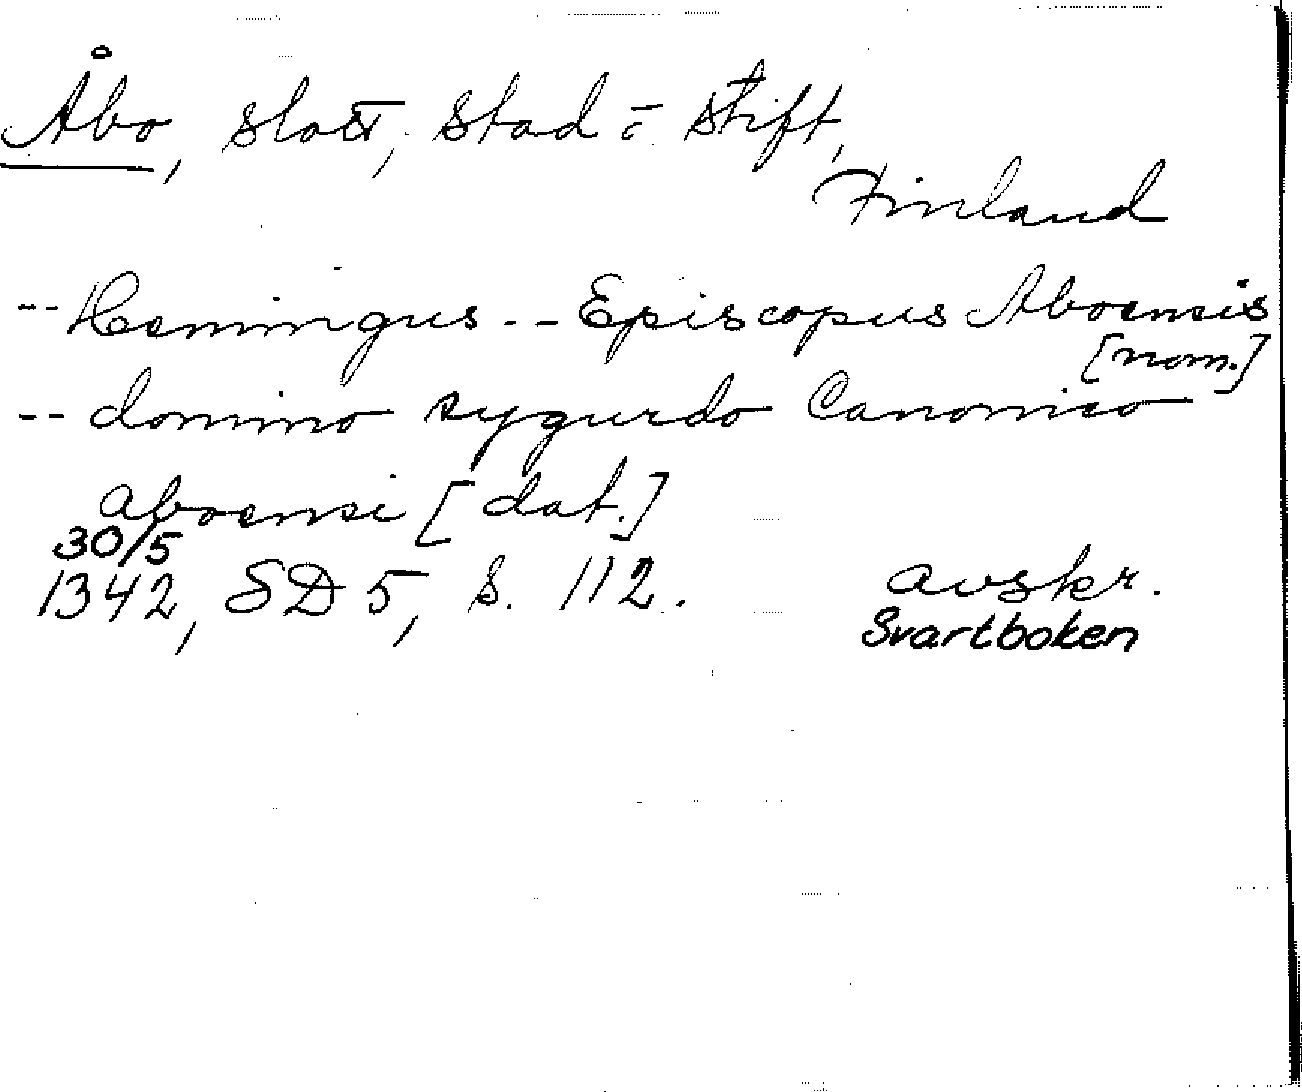 Åbo, slott, stad o. stift,
Finland
-- Hemingus -- Episcopus Aboensis
[nom.]
-- domino sygurdo Canonico
aboensi [dat.]
30/5
1342, SD 5, s. 112. avskr.
Svartboken